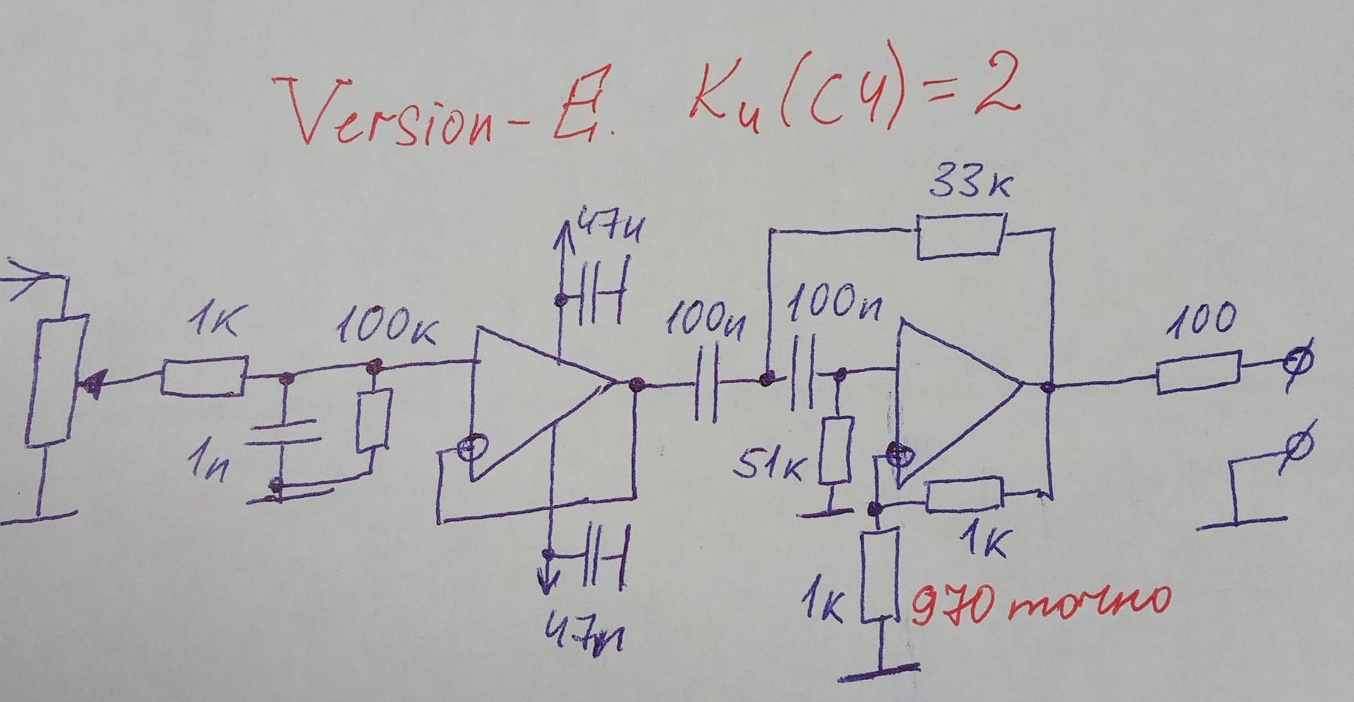 Version-E. Ku(СЧ)=2
33к
47н
1к
100к
100n
100n
100
1n
51к
1к
1к
970 точно
47n